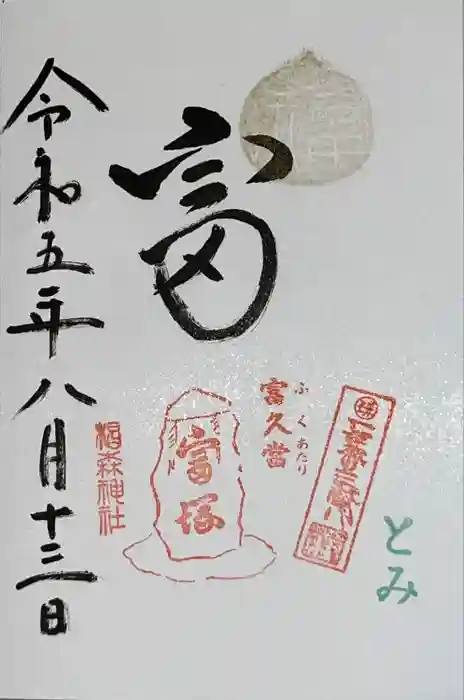 富
令和五年八月十三日
椙森神社
富塚
富久當
ふくあたり
とみ